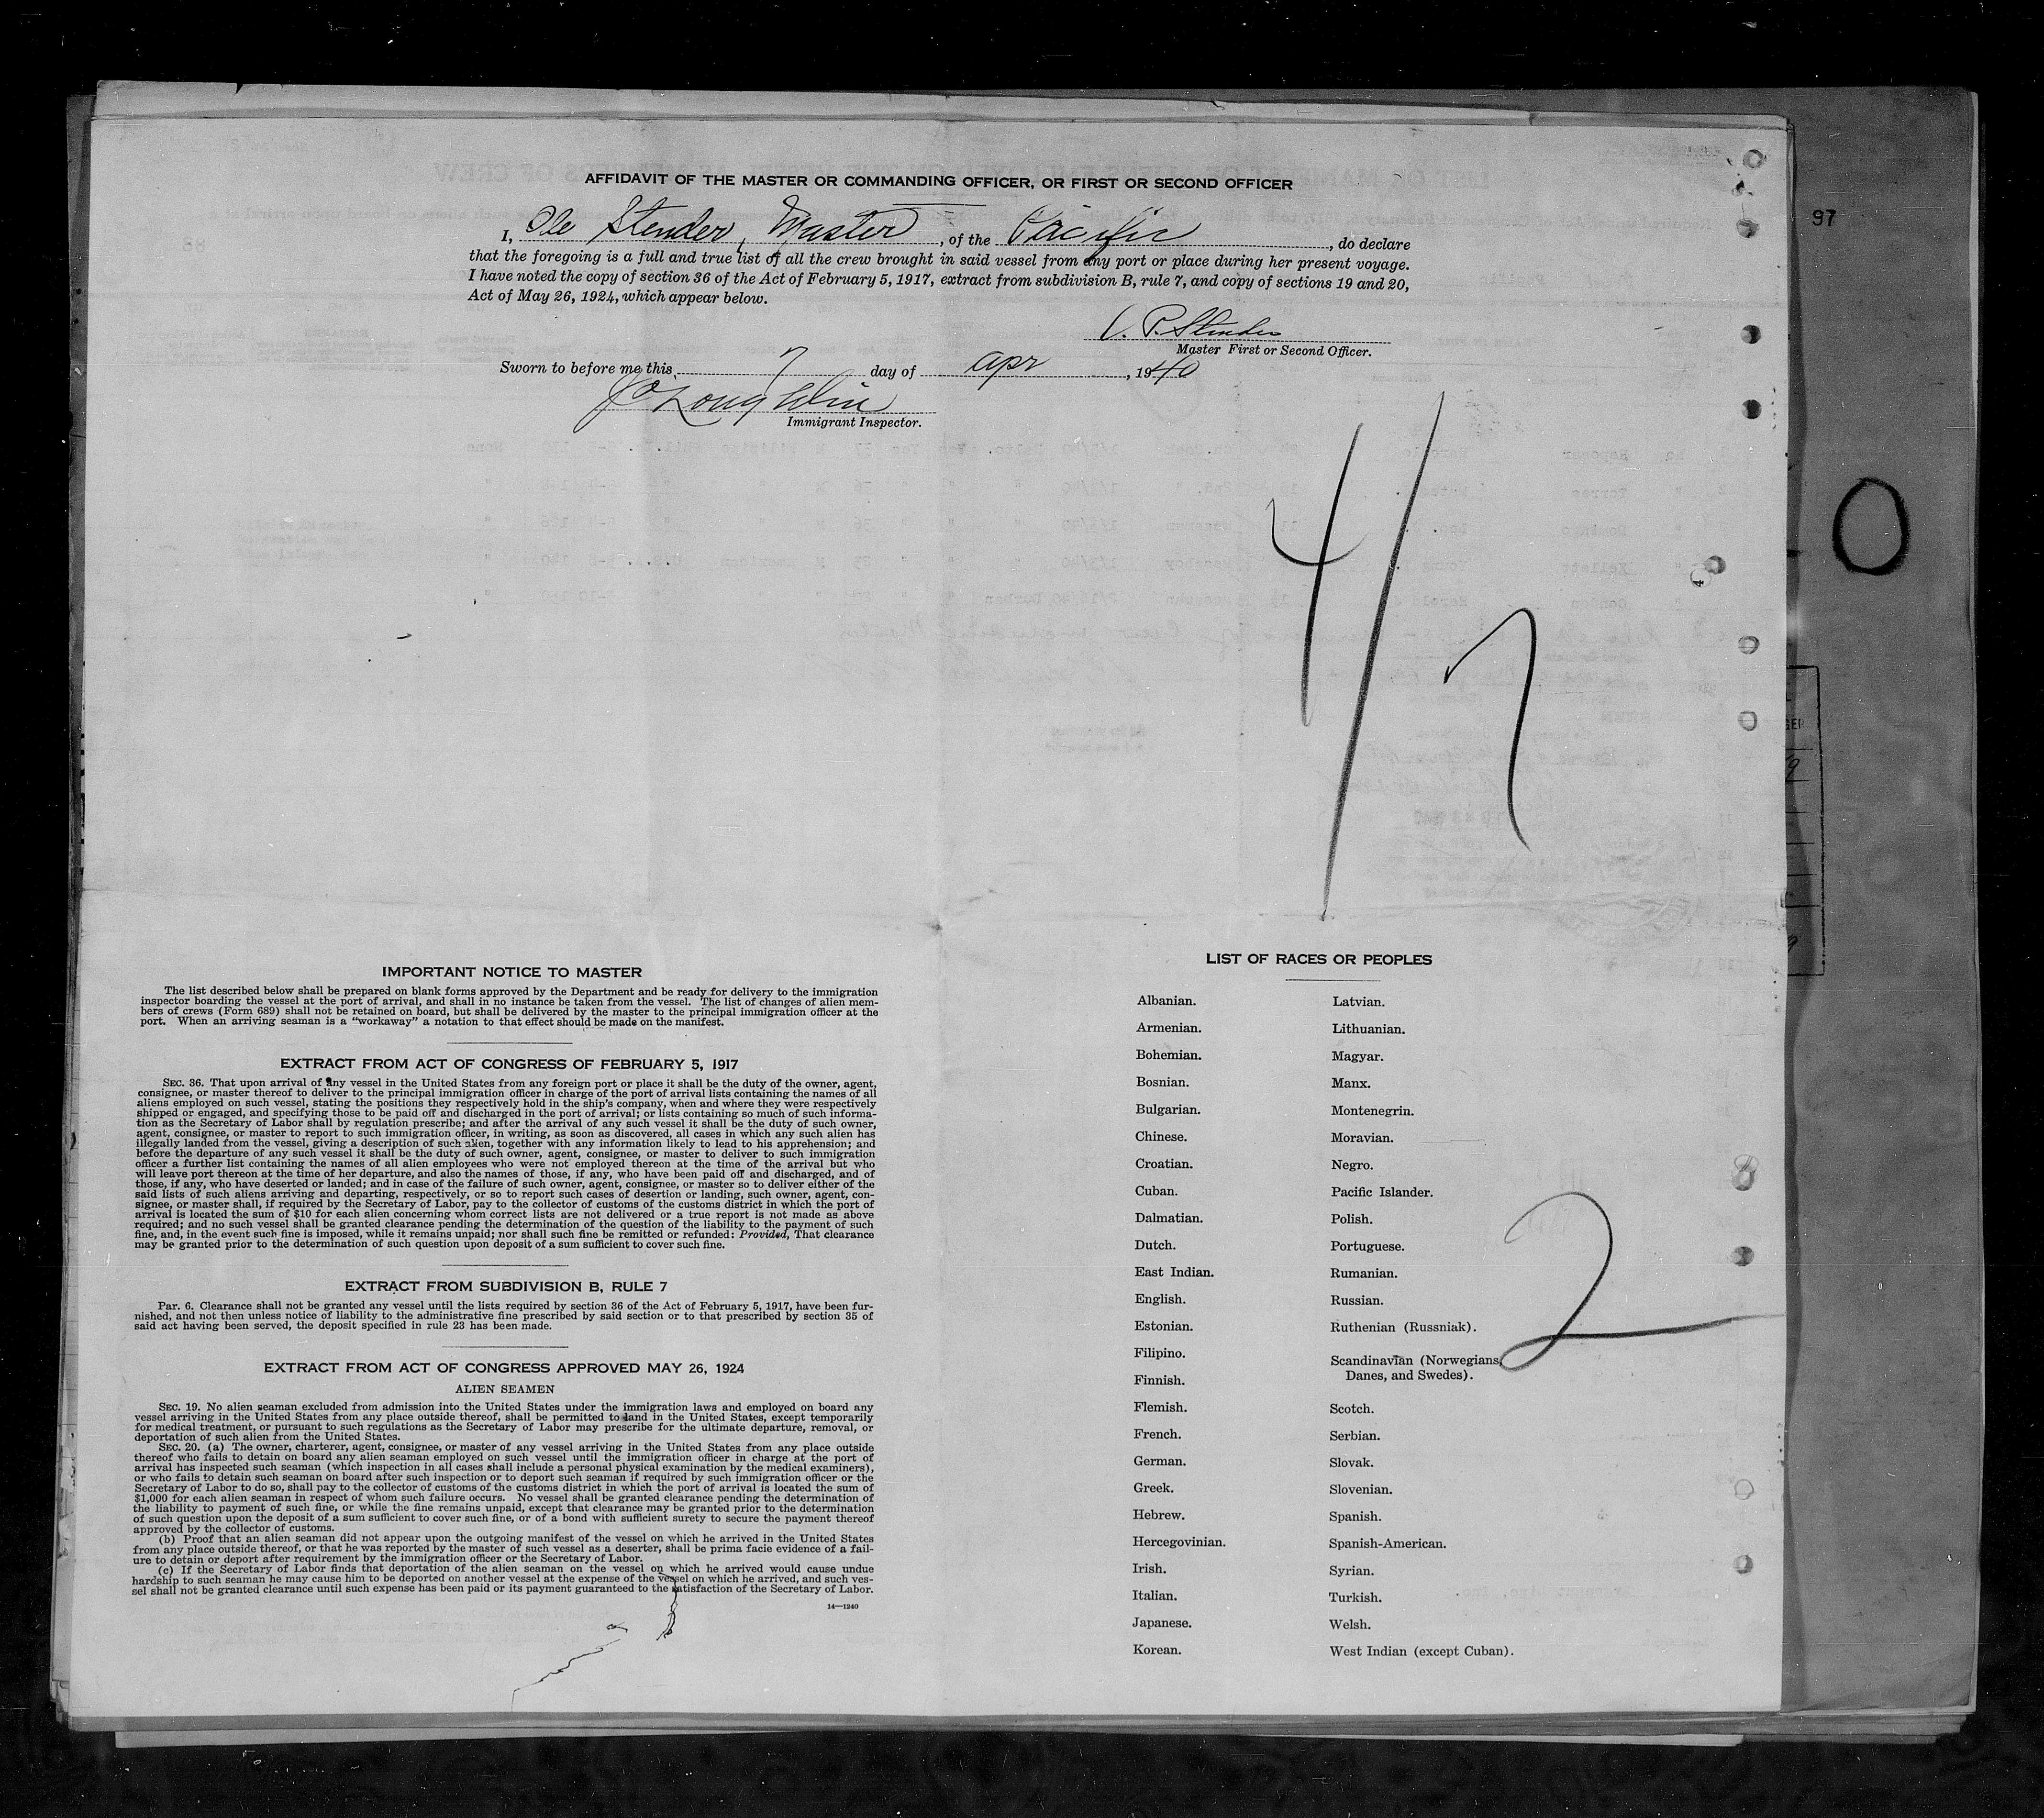 AFFIDAVIT OF THE MASTER OR COMMANDING OFFICER, OR FIRST OR SECOND OFFICER
I, Ole Stender, Master, of the Pacific, do declare
that the foregoing is a full and true list of all the crew brought in said vessel from any port or place during her present voyage.
I have noted the copy of section 36 of the Act of February 5, 1917, extract from subdivision B, rule 7, and copy of sections 19 and 20,
Act of May 26, 1924, which appear below.
O. P. Stender
Master First or Second Officer.
Sworn to before me this 7 day of apr, 1940
Immigrant Inspector.
97
4/7
O
IMPORTANT NOTICE TO MASTER
The list described below shall be prepared on blank forms approved by the Department and be ready for delivery to the immigration
inspector boarding the vessel at the port of arrival, and shall in no instance be taken from the vessel. The list of changes of alien mem-
bers of crews (Form 689) shall not be retained on board, but shall be delivered by the master to the principal immigration officer at the
port. When an arriving seaman is a "workaway" a notation to that effect should be made on the manifest.
EXTRACT FROM ACT OF CONGRESS OF FEBRUARY 5, 1917
SEC. 36. That upon arrival of any vessel in the United States from any foreign port or place it shall be the duty of the owner, agent,
consignee, or master thereof to deliver to the principal immigration officer in charge of the port of arrival lists containing the names of all
aliens employed on such vessel, stating the positions they respectively hold in the ship's company, when and where they were respectively
shipped or engaged, and specifying those to be paid off and discharged in the port of arrival; or lists containing so much of such informa-
tion as the Secretary of Labor shall by regulation prescribe; and after the arrival of any such vessel it shall be the duty of such owner,
agent, consignee, or master to report to such immigration officer, in writing, as soon as discovered, all cases in which any such alien has
illegally landed from the vessel, giving a description of such alien, together with any information likely to lead to his apprehension; and
before the departure of any such vessel it shall be the duty of such owner, agent, consignee, or master to deliver to such immigration
officer a further list containing the names of all alien employees who were not employed thereon at the time of the arrival but who
will leave port thereon at the time of her departure, and also the names of those, if any, who have been paid off and discharged, and of
those, if any, who have deserted or landed; and in case of the failure of such owner, agent, consignee, or master so to deliver either of the
said lists of such aliens arriving and departing, respectively, or so to report such cases of desertion or landing, such owner, agent, con-
signee, or master shall, if required by the Secretary of Labor, pay to the collector of customs of the customs district in which the port of
arrival is located the sum of $10 for each alien concerning whom correct lists are not delivered or a true report is not made as above
required; and no such vessel shall be granted clearance pending the determination of the question of the liability to the payment of such
fine, and, in the event such fine is imposed, while it remains unpaid; nor shall such fine be remitted or refunded: Provided, That clearance
may be granted prior to the determination of such question upon deposit of a sum sufficient to cover such fine.
EXTRACT FROM SUBDIVISION B, RULE 7
Par. 6. Clearance shall not be granted any vessel until the lists required by section 36 of the Act of February 5, 1917, have been fur-
nished, and not then unless notice of liability to the administrative fine prescribed by said section or to that prescribed by section 35 of
said act having been served, the deposit specified in rule 23 has been made.
EXTRACT FROM ACT OF CONGRESS APPROVED MAY 26, 1924
ALIEN SEAMEN
SEC. 19. No alien seaman excluded from admission into the United States under the immigration laws and employed on board any
vessel arriving in the United States from any place outside thereof, shall be permitted to land in the United States, except temporarily
for medical treatment, or pursuant to such regulations as the Secretary of Labor may prescribe for the ultimate departure, removal, or
deportation of such alien from the United States.
SEC. 20. (a) The owner, charterer, agent, consignee, or master of any vessel arriving in the United States from any place outside
thereof who fails to detain on board any alien seaman employed on such vessel until the immigration officer in charge at the port of
arrival has inspected such seaman (which inspection in all cases shall include a personal physical examination by the medical examiners),
or who fails to detain such seaman on board after such inspection or to deport such seaman if required by such immigration officer or the
Secretary of Labor to do so, shall pay to the collector of customs of the customs district in which the port of arrival is located the sum of
$1,000 for each alien seaman in respect of whom such failure occurs. No vessel shall be granted clearance pending the determination of
the liability to payment of such fine, or while the fine remains unpaid, except that clearance may be granted prior to the determination
of such question upon the deposit of a sum sufficient to cover such fine, or of a bond with sufficient surety to secure the payment thereof
approved by the collector of customs.
(b) Proof that an alien seaman did not appear upon the outgoing manifest of the vessel on which he arrived in the United States
from any place outside thereof, or that he was reported by the master of such vessel as a deserter, shall be prima facie evidence of a fail-
ure to detain or deport after requirement by the immigration officer or the Secretary of Labor.
(c) If the Secretary of Labor finds that deportation of the alien seaman on the vessel on which he arrived would cause undue
hardship to such seaman he may cause him to be deported on another vessel at the expense of the vessel on which he arrived, and such ves-
sel shall not be granted clearance until such expense has been paid or its payment guaranteed to the satisfaction of the Secretary of Labor.
14—1240
LIST OF RACES OR PEOPLES
Albanian.
Armenian.
Bohemian.
Bosnian.
Bulgarian.
Chinese.
Croatian.
Cuban.
Dalmatian.
Dutch.
East Indian.
English.
Estonian.
Filipino.
Finnish.
Flemish.
French.
German.
Greek.
Hebrew.
Hercegovinian.
Irish.
Italian.
Japanese.
Korean.
Latvian.
Lithuanian.
Magyar.
Manx.
Montenegrin.
Moravian.
Negro.
Pacific Islander.
Polish.
Portuguese.
Rumanian.
Russian.
Ruthenian (Russniak).
Scandinavian (Norwegians,
Danes, and Swedes).
Scotch.
Serbian.
Slovak.
Slovenian.
Spanish.
Spanish-American.
Syrian.
Turkish.
Welsh.
West Indian (except Cuban).
2